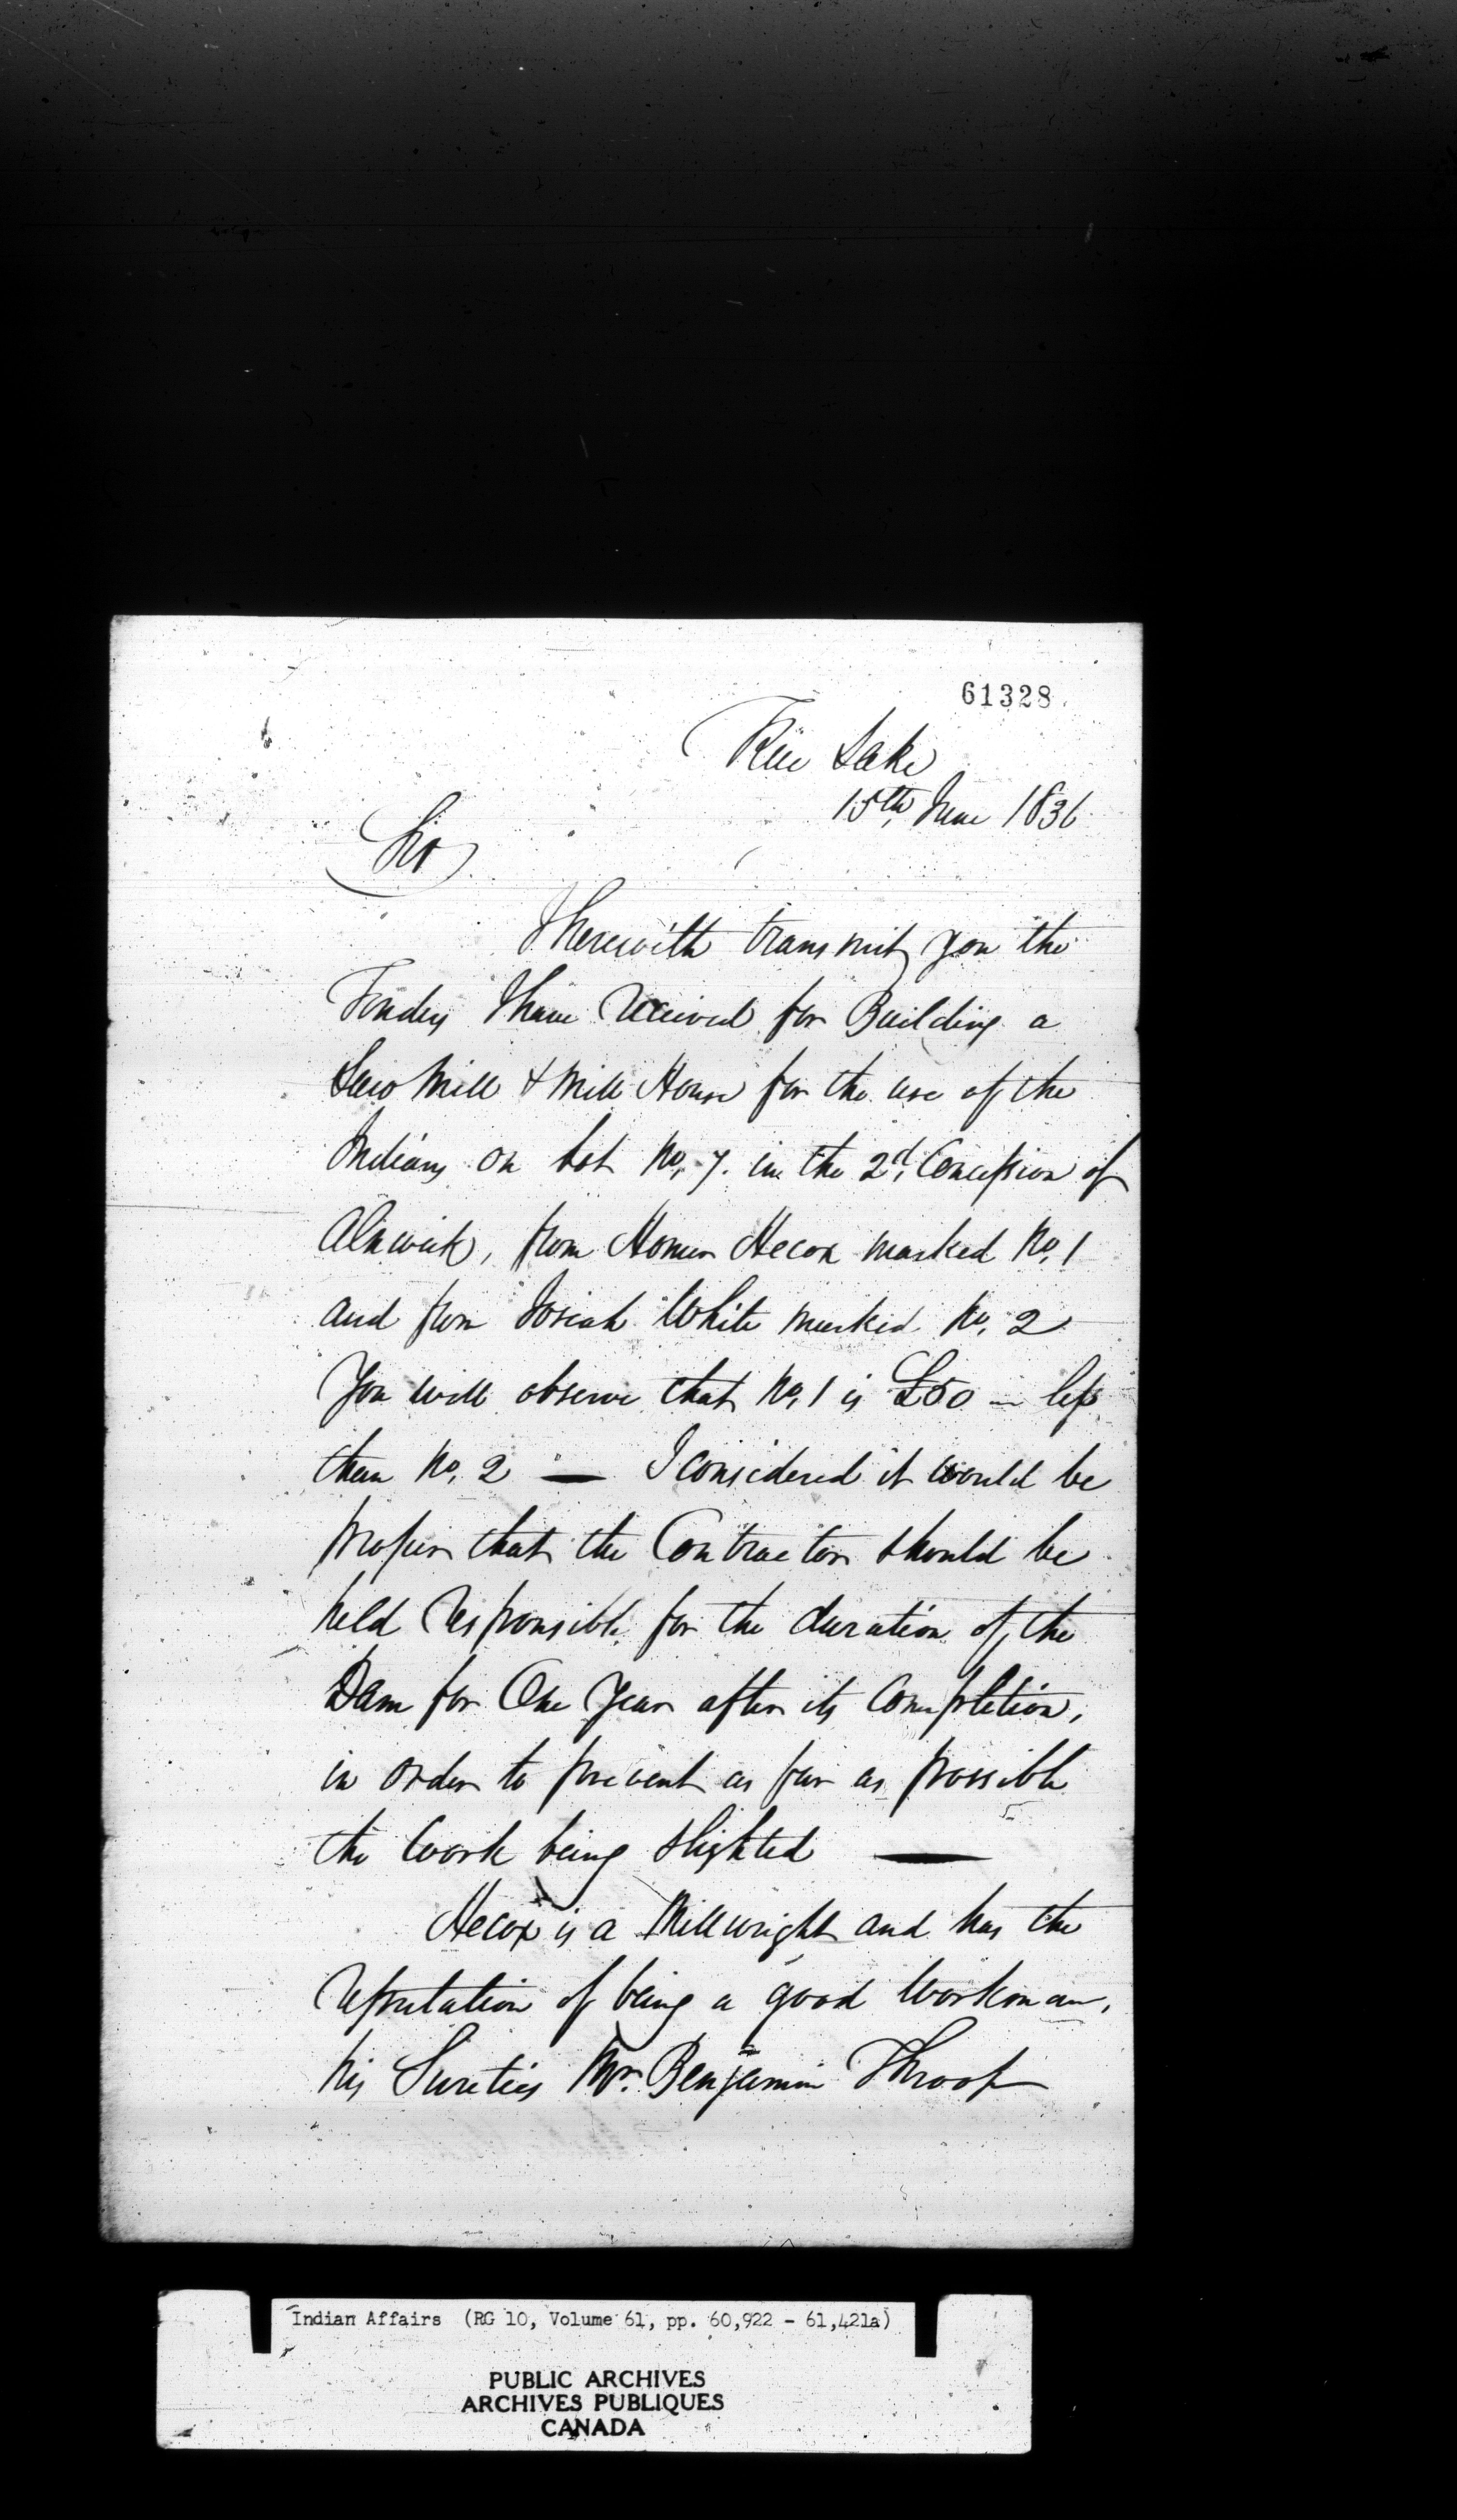 61328
Rice Lake
15th June 1836
Sir
I herewith transmit you the
Tenders I have received for Building a
Saw Mill & Mill House for the use of the
Indians on Lot No. 7. in the 2d. Concession of
Alnwick, from Homer Hecox marked No. 1
and from Josiah White marked No. 2
You will observe that No. 1 is £50 — less
than No. 2 — I considered it would be
proper that the Contractor should be
held responsible for the duration of the
Dam for One Year after its Completion,
in order to prevent as far as possible
the Work being slighted —
Hecox is a Millwright and has the
reputation of being a good Workman,
his Sureties Mr. Benjamin Throop
Indian Affairs (RG 10, Volume 61, pp. 60,922 - 61,421a)
PUBLIC ARCHIVES
ARCHIVES PUBLIQUES
CANADA